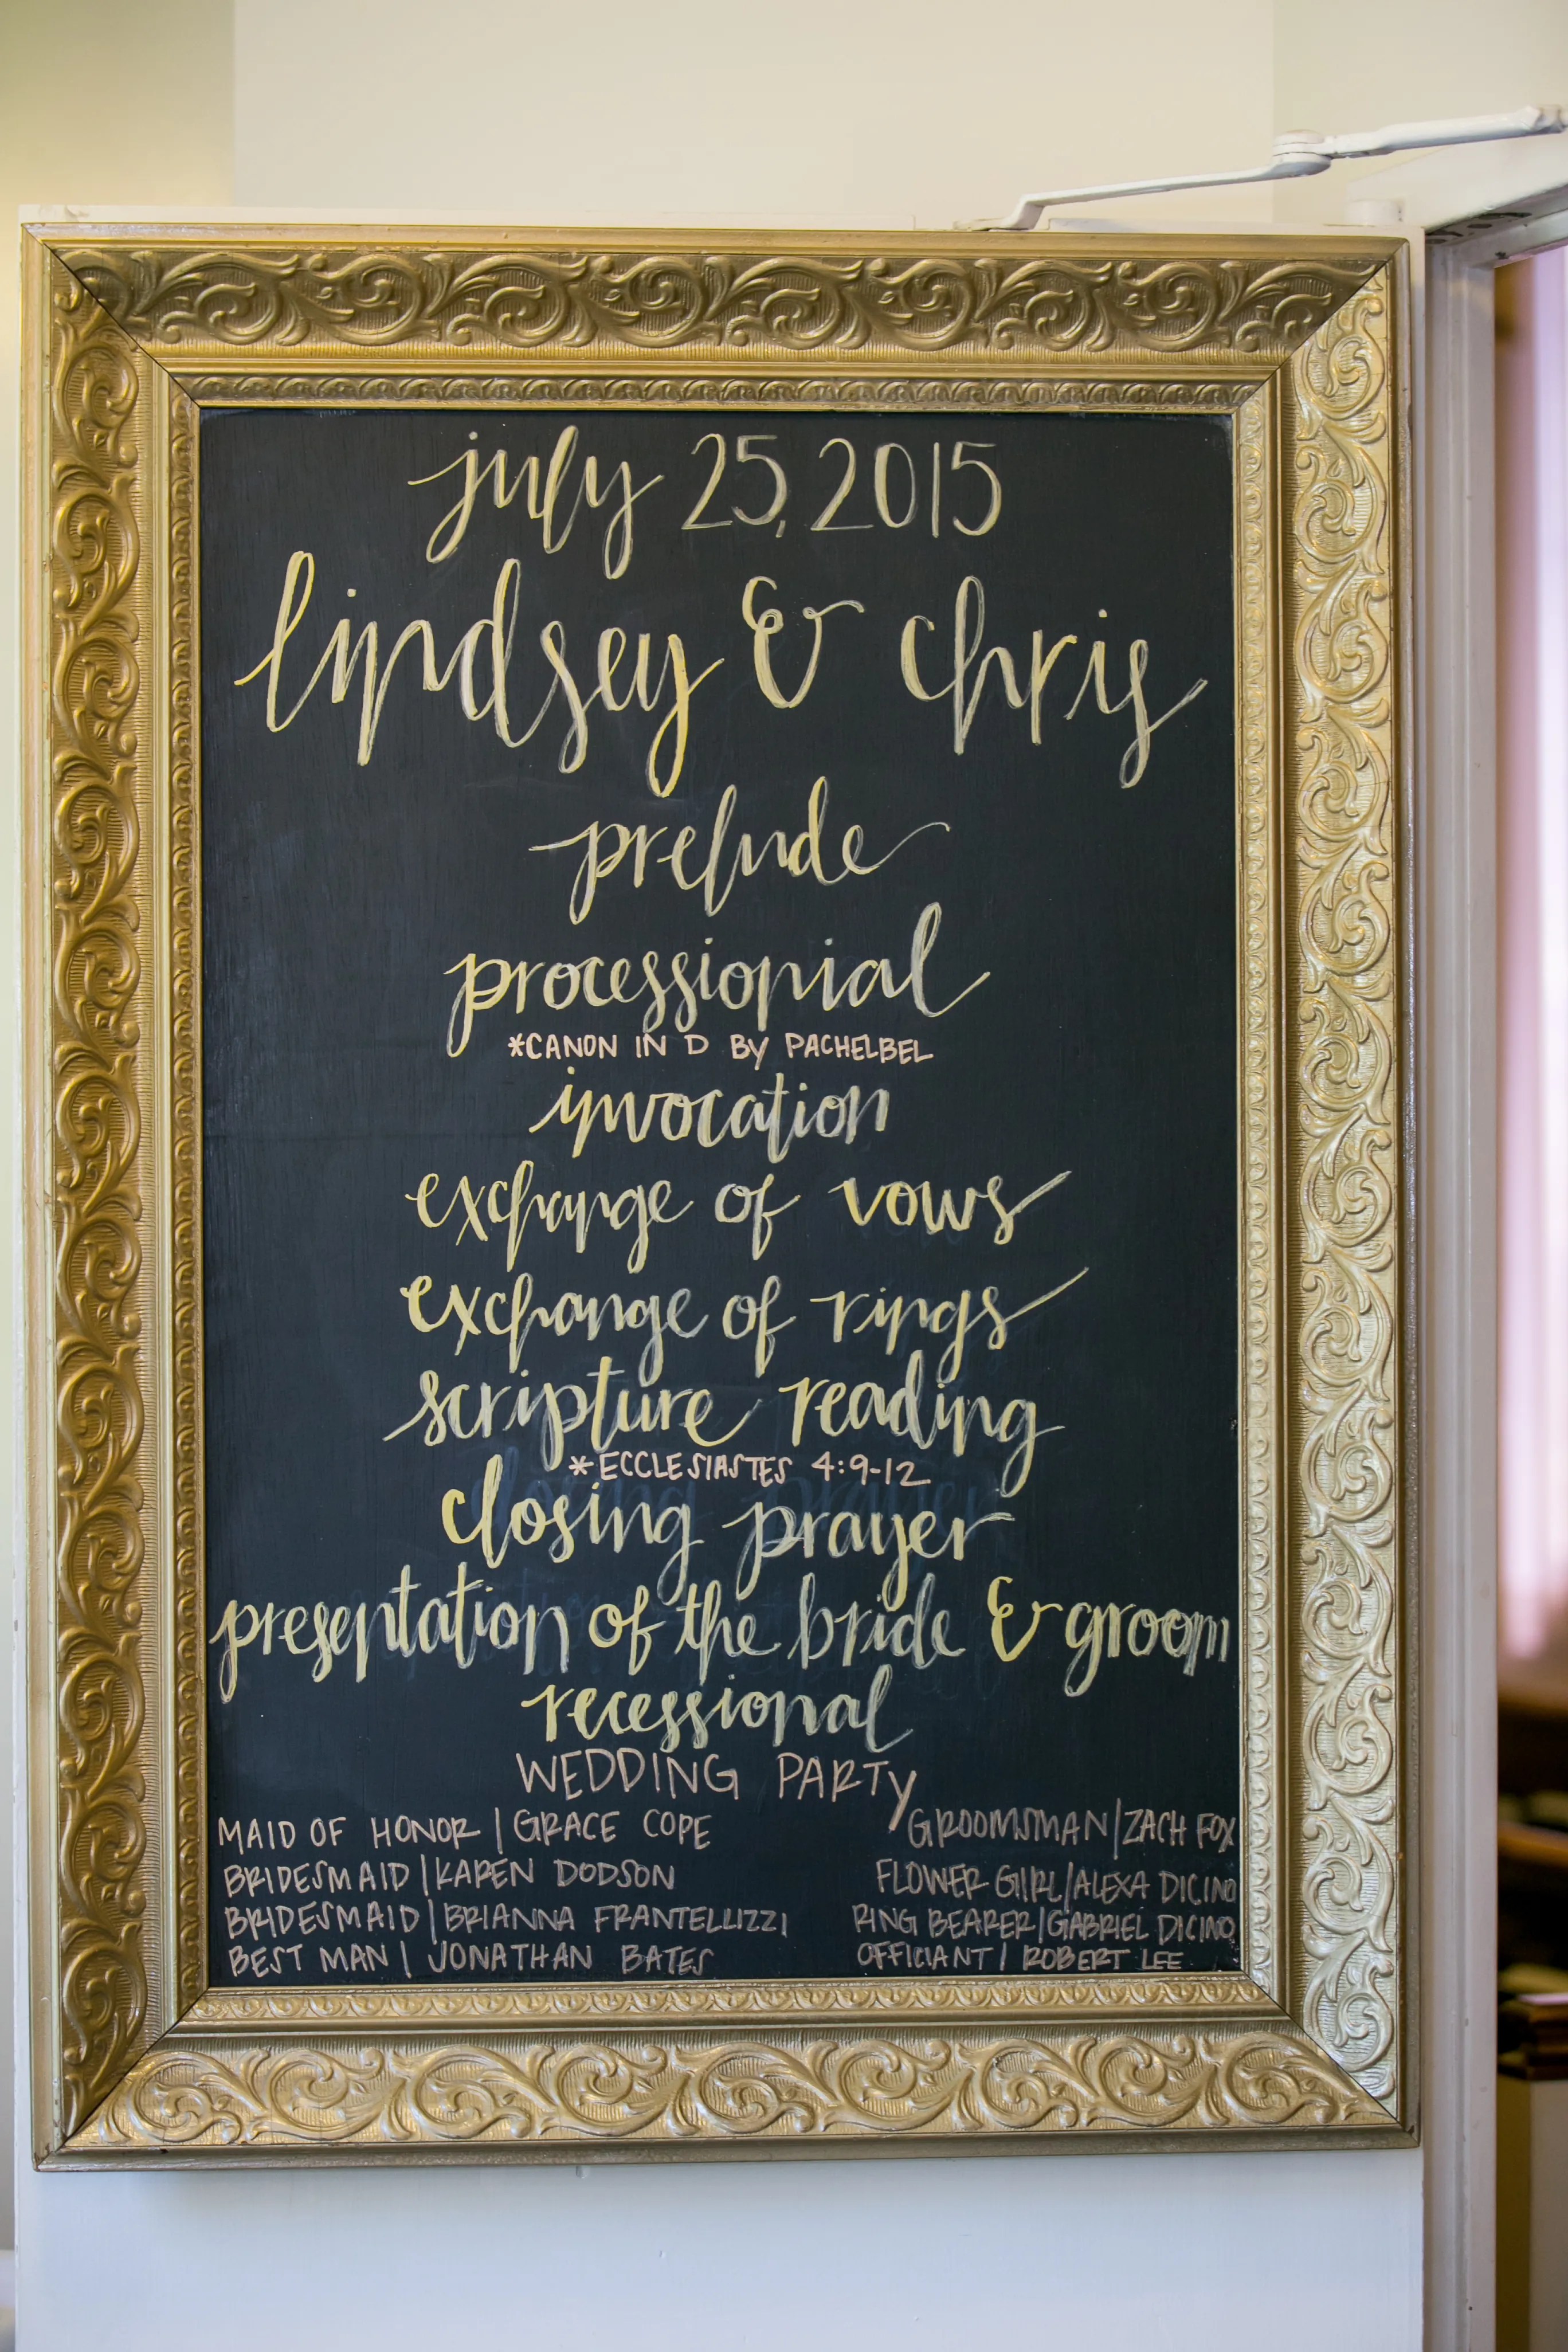 july 25, 2015
lindsey & chris
prelude
processionial
*CANON IN D BY PACHELBEL
invocation
exchange of vows
exchange of rings
scripture reading
*ECCLESIASTES 4:9-12
closing prayer
presentation of the bride & groom
recessional
WEDDING PARTY
MAID OF HONOR | GRACE COPE
BRIDESMAID | KAREN DODSON
BRIDESMAID | BRIANNA FRANTELLIZZI
BEST MAN | JONATHAN BATES
GROOMSMAN | ZACH FOX
FLOWER GIRL | ALEXA DICINO
RING BEARER | GABRIEL DICINO
OFFICIANT | ROBERT LEE